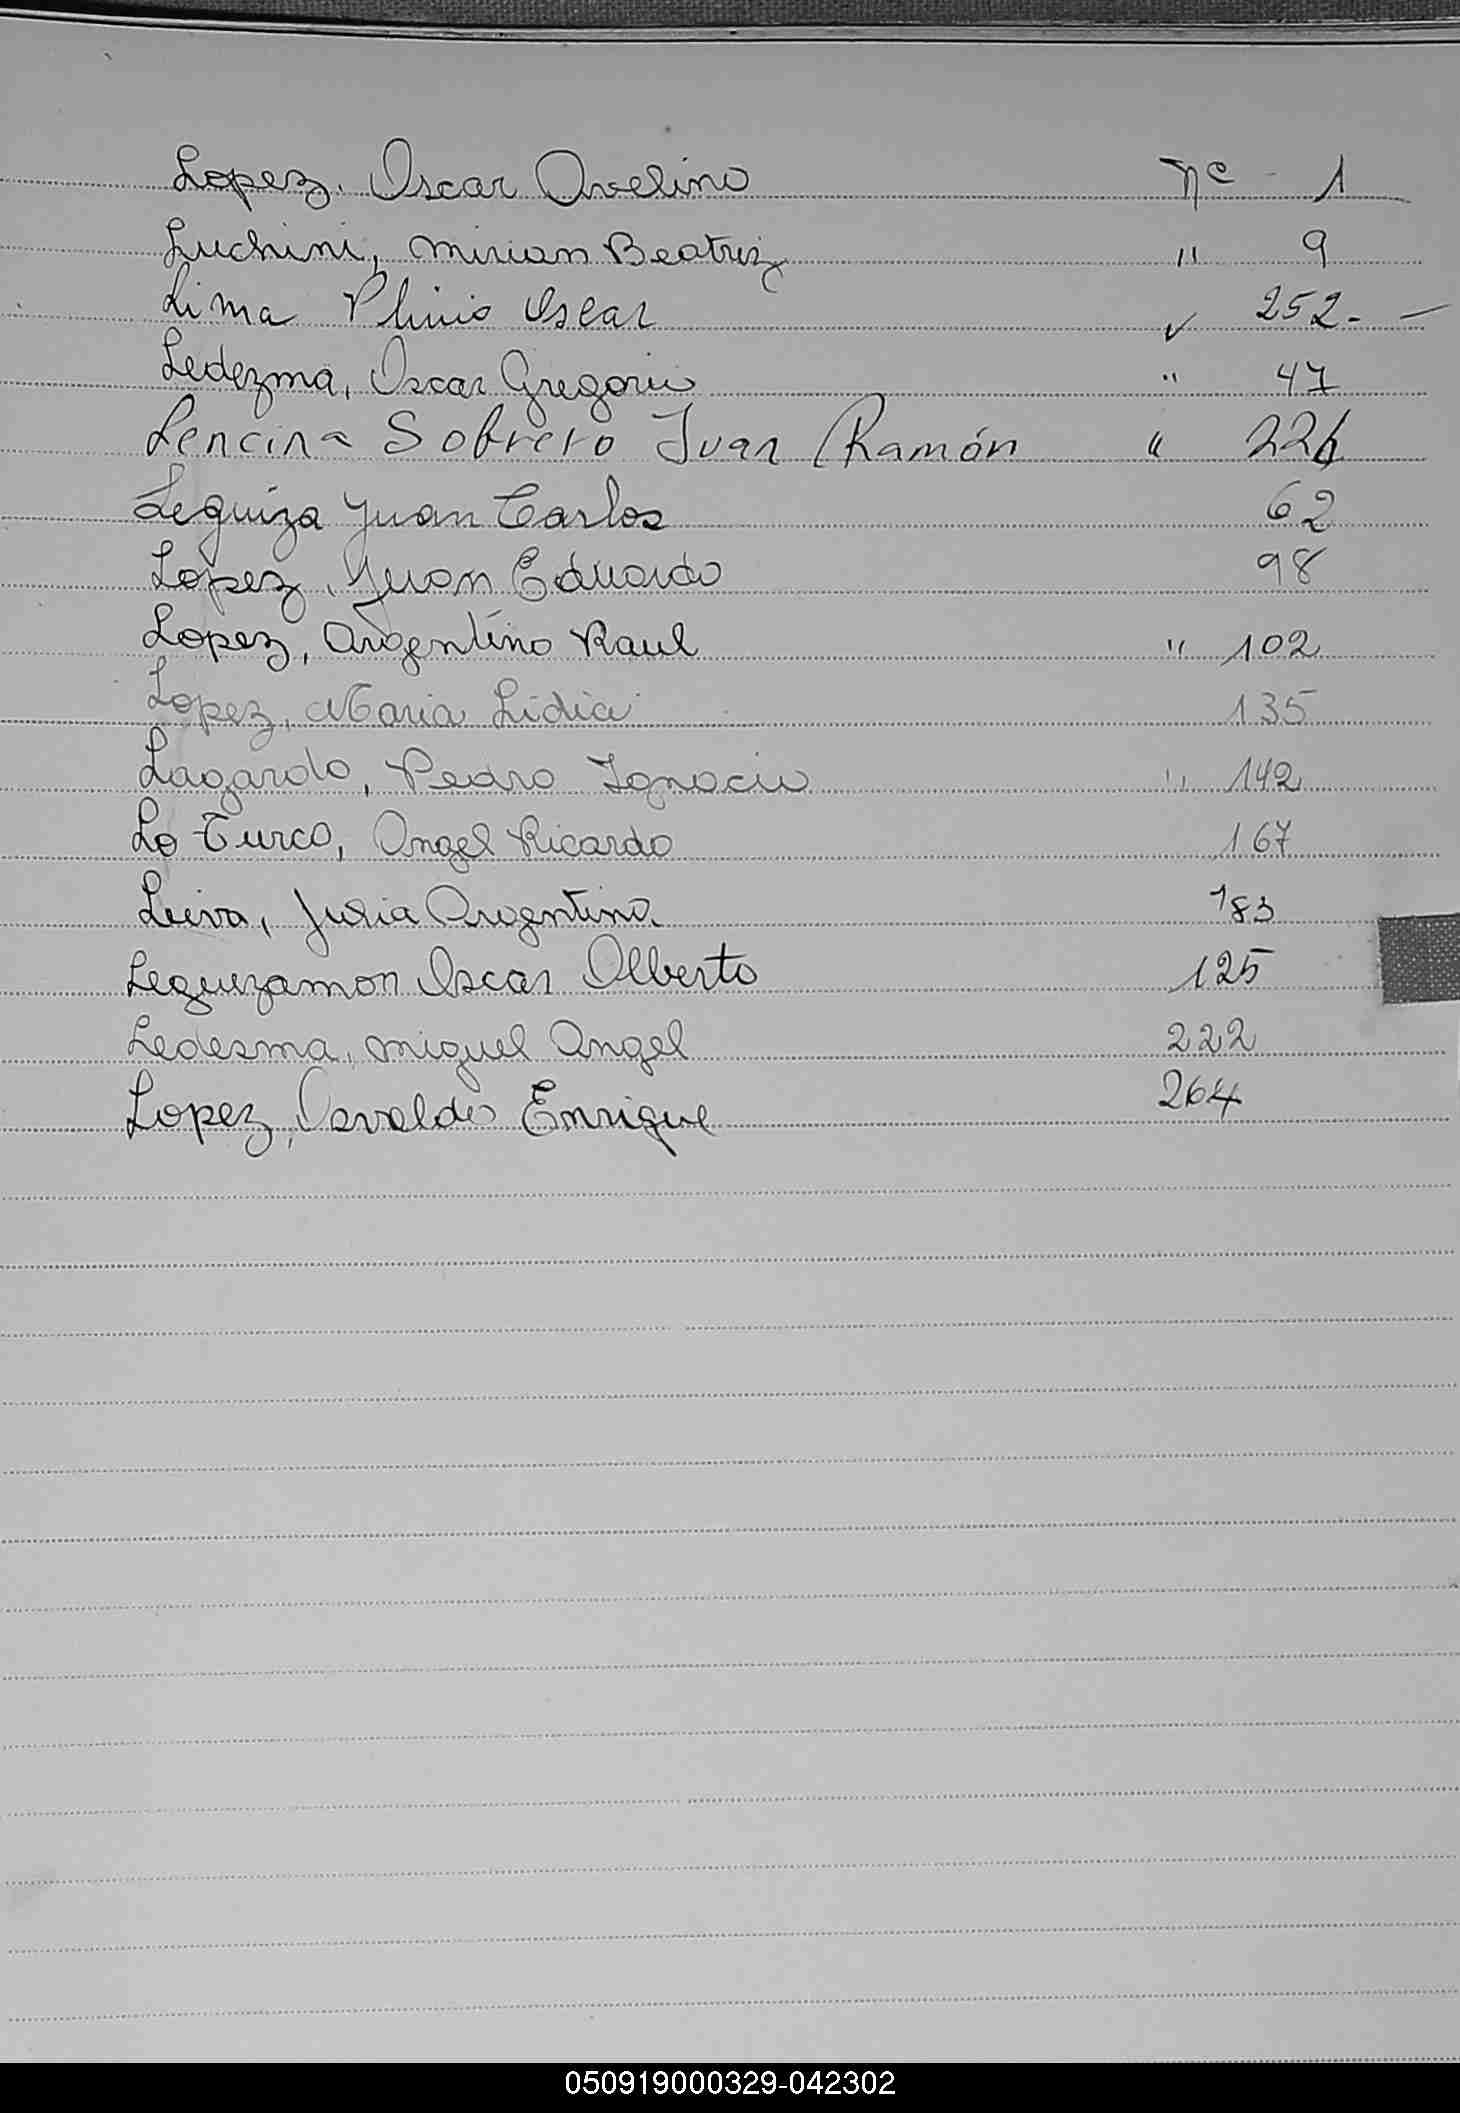 Lopez, Oscar Avelino Nº 1
Luchini, Mirian Beatriz " 9
Lima Plinio Oscar " 252.-
Ledezma, Oscar Gregorio " 47
Lencina Sobrero Juan Ramón " 226
Leguiza Juan Carlos 62
Lopez, Juan Eduardo 98
Lopez, Argentino Raul " 102
Lopez, Maria Lidia 135
Lagardo, Pedro Ignacio " 142
Lo Turco, Angel Ricardo 167
Leiva, Julia Argentina 183
Leguizamon Oscar Alberto 125
Ledesma, Miguel Angel 222
Lopez, Osvaldo Enrique 264
050919000329-042302